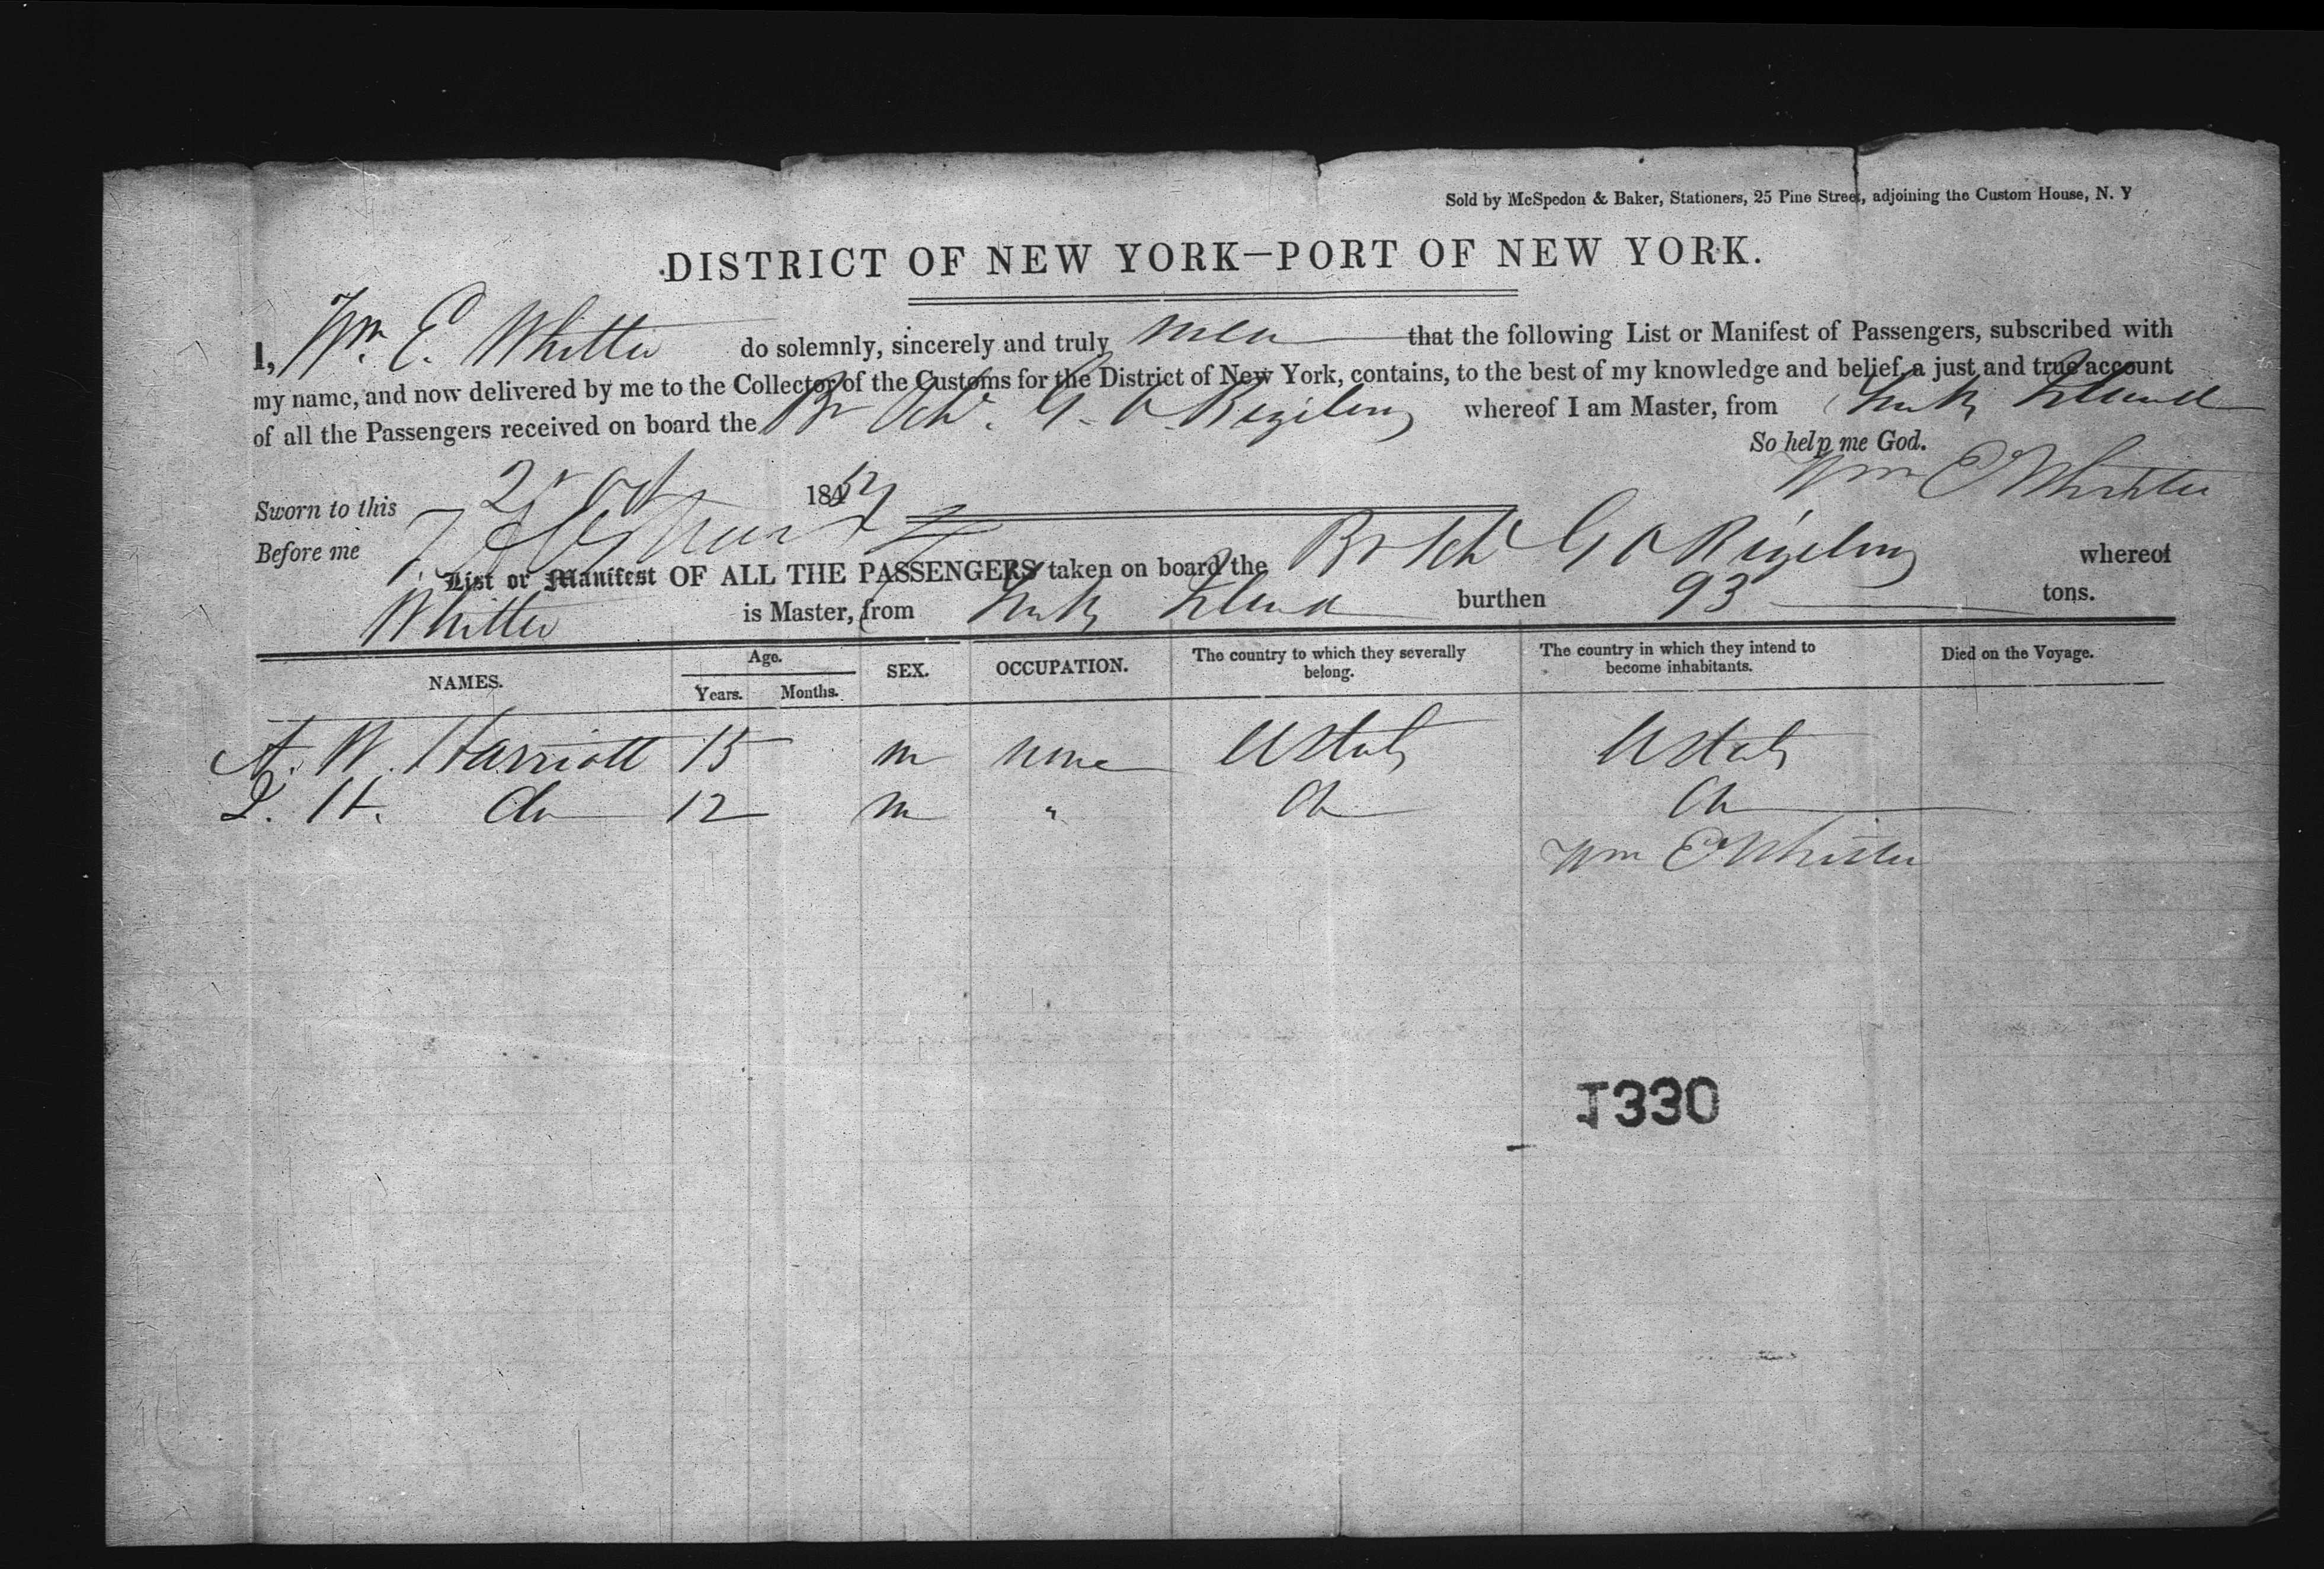 Sold by McSpedon & Baker, Stationers, 25 Pine Street, adjoining the Custom House, N. Y
DISTRICT OF NEW YORK—PORT OF NEW YORK.
I, Wm. E. Whitter do solemnly, sincerely and truly that the following List or Manifest of Passengers, subscribed with
my name, and now delivered by me to the Collector of the Customs for the District of New York, contains, to the best of my knowledge and belief, a just and true account
of all the Passengers received on board the Br Schr. G. O. whereof I am Master, from Turks Island
So help me God.
Wm E Whitter
Sworn to this 25 Oct 185
Before me
List or Manifest OF ALL THE PASSENGERS taken on board the Br Schr G O whereof
Whitter is Master, from Turks Island burthen 93 tons.
NAMES. Age. Years. Months. SEX. OCCUPATION. The country to which they severally belong. The country in which they intend to become inhabitants. Died on the Voyage.
A. W. Harriott 15 m none U States U States
J. H. do 12 m " do do
Wm E Whitter
1330